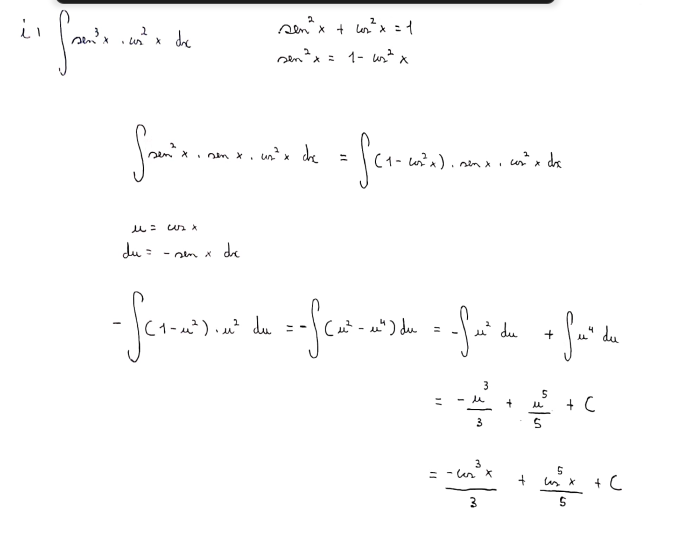 i) ∫ sen³x . cos²x dx
sen²x + cos²x = 1
sen²x = 1 - cos²x
∫ sen²x . sen x . cos²x dx = ∫ (1 - cos²x) . sen x . cos²x dx
u = cos x
du = - sen x dx
- ∫ (1 - u²) . u² du = - ∫ (u² - u⁴) du = - ∫ u² du + ∫ u⁴ du
= - u³/3 + u⁵/5 + C
= - cos³x/3 + cos⁵x/5 + C